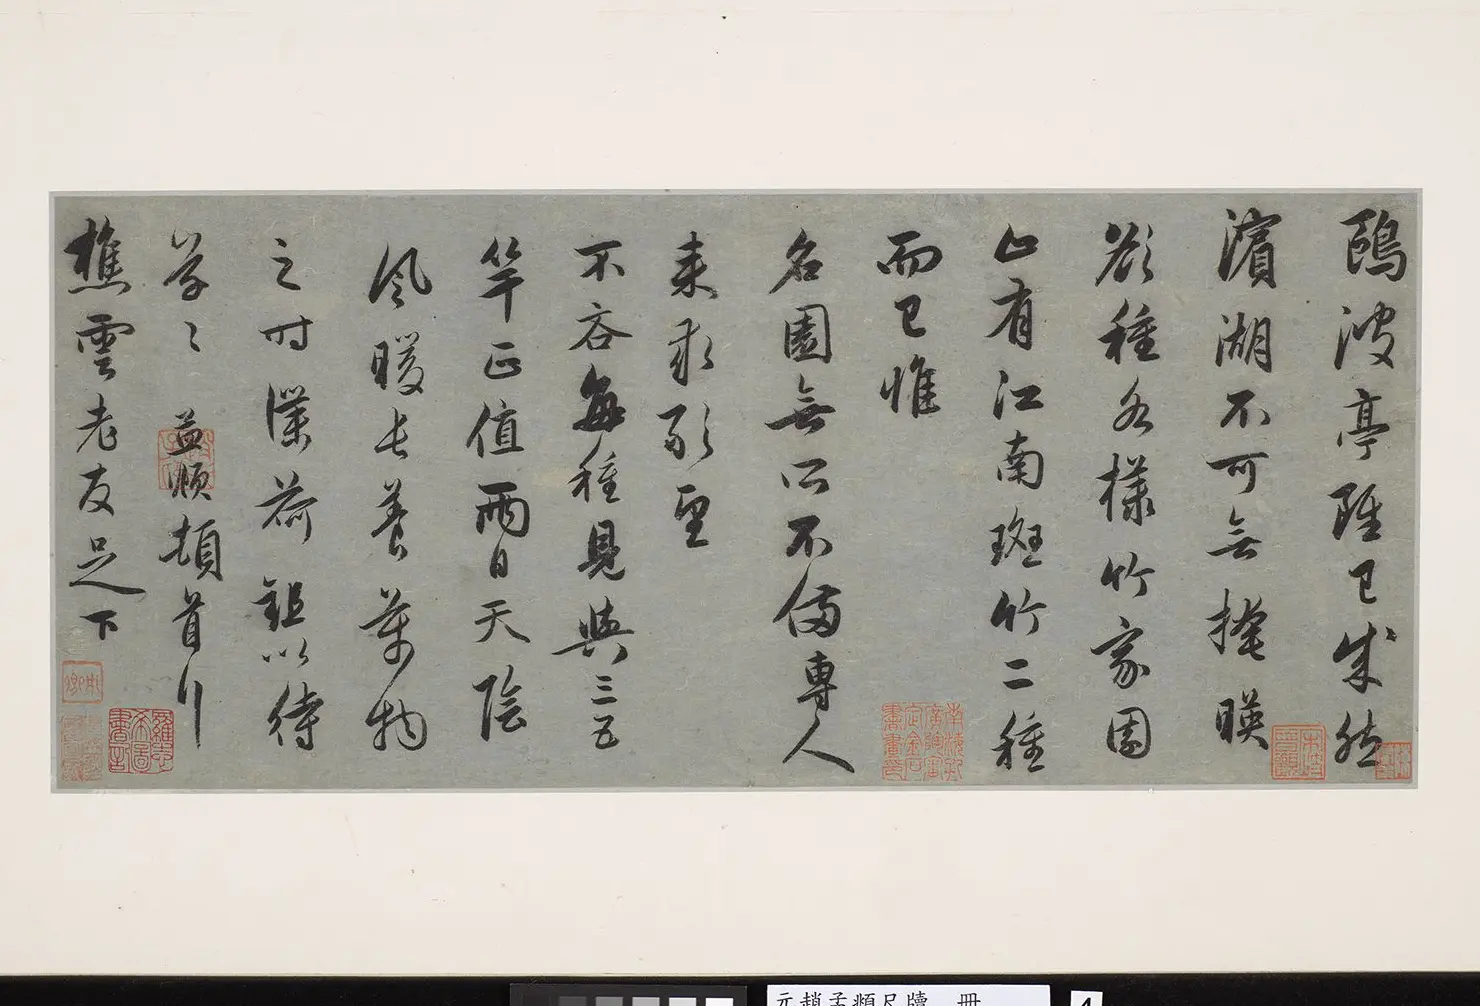 鷗波亭雖已成然
濱湖不可無掩暎
欲種各樣竹家園
止有江南斑竹二種
而已惟
名園無所不備專人
來求數
不吝每種見與三五
竿正值雨日天陰
風暖長養萬物
之時渫荷鉏以待
孟頫頓首
樵雲老友足下
元趙孟頫尺牘 冊